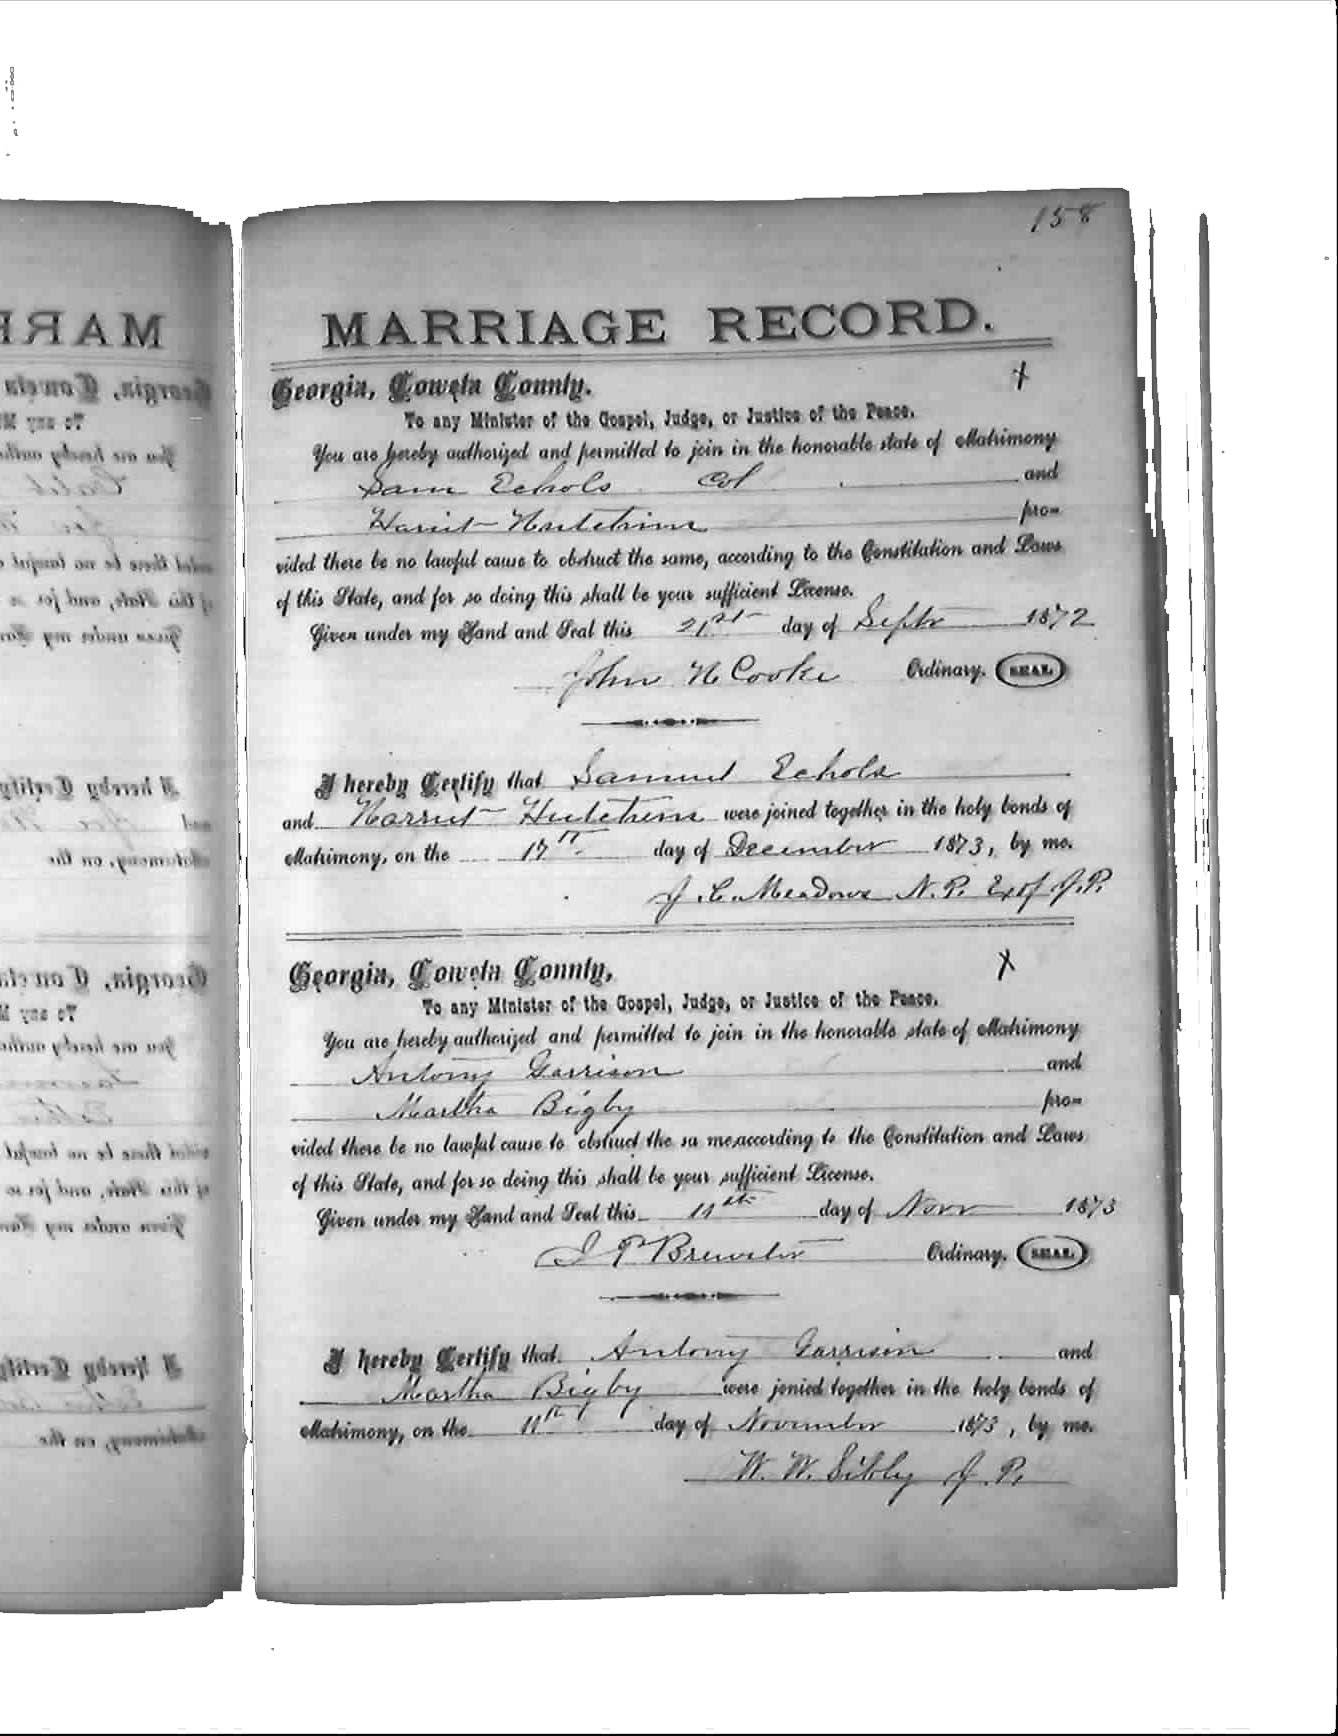 158
MARRIAGE RECORD.
Georgia, Coweta County.
To any Minister of the Gospel, Judge, or Justice of the Peace.
You are hereby authorized and permitted to join in the honorable state of Matrimony
Sam Echols Col and
Hariet Hutchins pro-
vided there be no lawful cause to obstruct the same, according to the Constitution and Laws
of this State, and for so doing this shall be your sufficient License.
Given under my Hand and Seal this 21st day of Septr 1872
John H Cooke Ordinary. SEAL
I hereby Certify that Samuel Echols
and Harriet Hutchins were joined together in the holy bonds of
Matrimony, on the 17th day of December 1873, by me.
J. C. Meadows N. P. Ex of J. P.
Georgia, Coweta County,
To any Minister of the Gospel, Judge, or Justice of the Peace.
You are hereby authorized and permitted to join in the honorable state of Matrimony
Antony Garrison and
Martha Bigby pro-
vided there be no lawful cause to obstruct the sa me,according to the Constitution and Laws
of this State, and for so doing this shall be your sufficient License.
Given under my Hand and Seal this 11th day of Novr 1873
J P Brewster Ordinary. SEAL
I hereby Certify that Antony Garrison and
Martha Bigby were jonied together in the holy bonds of
Matrimony, on the 11th day of November 1873, by me.
W. W. Sibly J. P.